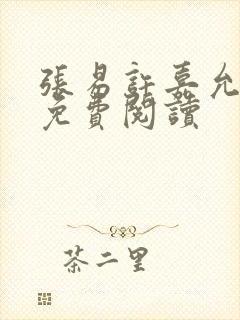 張易許嘉允
免費閱讀
茶二里